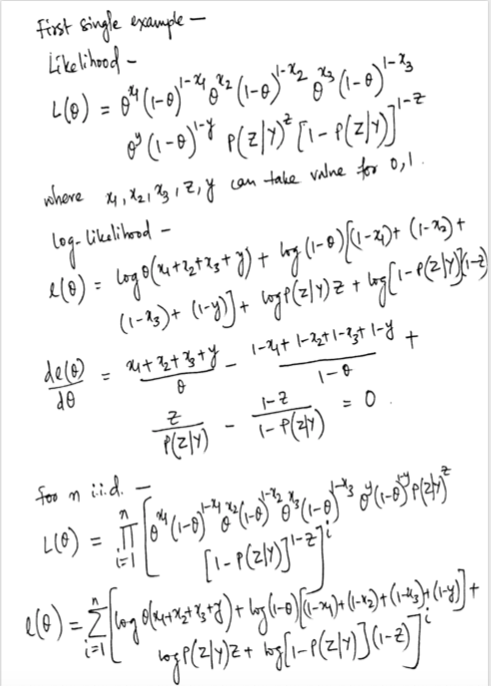 First single example —
Likelihood —
L(θ) = θ^x₁ (1-θ)^1-x₁ θ^x₂ (1-θ)^1-x₂ θ^x₃ (1-θ)^1-x₃
θ^y (1-θ)^1-y P(z|y)^z [1-P(z|y)]^1-z
where x₁, x₂, x₃, z, y can take value for 0,1.
log-likelihood —
ℓ(θ) = log θ(x₁+x₂+x₃+y) + log (1-θ)[(1-x₁)+ (1-x₂)+
(1-x₃)+ (1-y)]+ log P(z|y) z + log[1-P(z|y)](1-z)
dℓ(θ)/dθ = (x₁+x₂+x₃+y)/θ - (1-x₁+1-x₂+1-x₃+1-y)/(1-θ) +
z/P(z|y) - (1-z)/(1-P(z|y)) = 0.
for n i.i.d. —
L(θ) = ∏_{i=1}^{n} [θ^x₁ (1-θ)^1-x₁ θ^x₂ (1-θ)^1-x₂ θ^x₃ (1-θ)^1-x₃ θ^y (1-θ)^1-y P(z|y)^z
[1-P(z|y)]^1-z]^i
ℓ(θ) = Σ_{i=1}^{n} [log θ(x₁+x₂+x₃+y)+ log(1-θ)[(1-x₁)+(1-x₂)+(1-x₃)+(1-y)]+
log P(z|y)z + log[1-P(z|y)](1-z)]^i